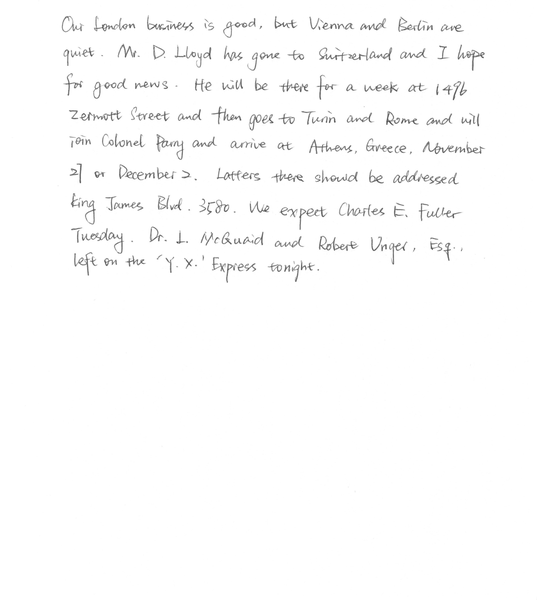 Our London business is good, but Vienna and Berlin are
quiet. Mr. D. Lloyd has gone to Switzerland and I hope
for good news. He will be there for a week at 1496
Zermott Street and then goes to Turin and Rome and will
join Colonel Parry and arrive at Athens, Greece, November
27 or December 2. Latters there should be addressed
King James Blvd. 3580. We expect Charles E. Fuller
Tuesday. Dr. L. McQuaid and Robert Unger, Esq.,
left on the 'Y. X.' Express tonight.